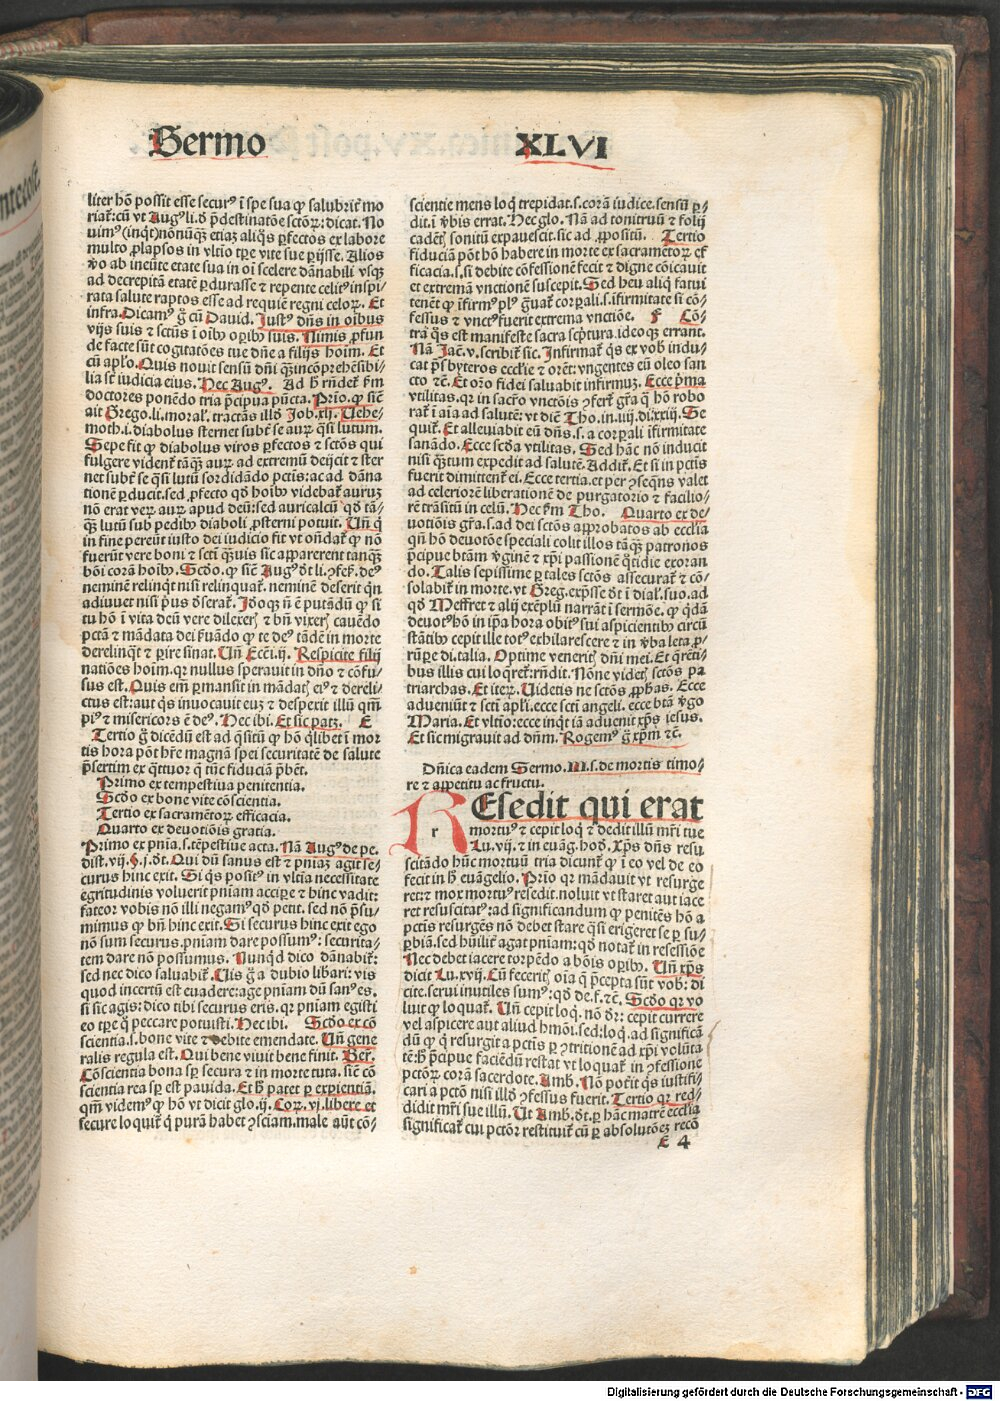 Sermo XLVI
liter hõ possit esse securꝰ ĩ spe sua ꝙ salubriť mo
riaľ: cũ vt Augꝰ li. ð p̃destinatõe sctõꝝ: dicat. No
uimꝰ (inq̃t) nõnũq̃ꝫ etiaz aliq̃s ꝑfectos ex labore
multo ꝓlapsos in vltio tꝑe vite sue ꝑijsse. Alios
ṽo ab ineũte etate sua in oĩ scelere dãnabili vsqꝫ
ad decrepitã etatẽ ꝑdurasse ⁊ repente celitꝰ inspi
rata salute raptos esse ad requiẽ regni celoꝝ. Et
infra. Dicamꝰ g̃ cũ Dauid. Justꝰ dñs in oĩbus
vijs suis ⁊ sctũs ĩ oĩbꝰ oꝑibꝰ suis. Nimis ꝓfun
de facte sũt cogitatões tue dñe a filijs hoĩm. Et
cũ apľo. Quis nouit sensũ dñi q̃ꝫ incõprehẽsibi-
lia sĩt iudicia eius. Hec Augꝰ. Ad h̃ rñdeť ẜm
doctores ponẽdo tria p̃cipua pũcta. Prio. ꝙ sič
ait Grego. li. moraľ. tractãs illð Job. xlj. Uehe-
moth. i. diabolus sternet subť se auꝝ q̃si lutum.
Sepe fit ꝙ diabolus viros ꝑfectos ⁊ sctõs qui
fulgere videnť tãq̃ꝫ auꝝ ad extremũ deijcit ⁊ ster
net subť se q̃si lutũ sordidãdo pctĩs: ac ad dãna
tionẽ ꝑducit. sed ꝓfecto qð hoĩbꝰ videbať auruꝫ
nõ erat veꝝ auꝝ apud deũ: sed auricalcũ qð tã-
q̃ꝫ lutũ sub pedibꝰ diaboli ꝓsterni potuit. Uñ q̃
in fine pereũt iusto dei iudicio fit vt oñdať ꝙ nõ
fuerũt vere boni ⁊ sctĩ q̃ꝫuis sic apparerent tanqꝫ
bõi corã hoĩbꝰ. Scðo. ꝙ sič Augꝰ ðt li. ꝯfeẜ. deꝰ
neminẽ relinq̃t nisi relinquať. neminẽ deserit q̃n
adiuuet nisi p̃us ðserať. Jðoqꝫ ñ ẽ putãdũ ꝙ si
tu hõ ĩ vita deũ vere dilexeris ⁊ bñ vixeris cauẽdo
pctã ⁊ mãdata dei ẜuãdo ꝙ te deꝰ tãdẽ in morte
derelinq̃t ⁊ ꝑire sinat. Uñ Eccĩ. ij. Respicite filij
natiões hoĩm. qꝛ nullus sperauit in dño ⁊ cõfu-
sus est. Quis em̃ ꝑmansit in mãdatis eiꝰ ⁊ dereli-
ctus est: aut q̃s inuocauit euꝫ ⁊ despexit illũ qm̃
piꝰ ⁊ misericors ẽ deꝰ. Hec ibi. Et sic patꝫ. E
Tertio g̃ dicẽdũ est ad q̃sitũ ꝙ hõ q̃libet ĩ mor
tis hora põt hr̃e magnã spei securitatẽ de salute
p̃sertim ex q̃ttuor q̃ tũc fiduciã p̃bẽt.
Primo ex tempestiua penitentia.
Scðo ex bone vite cõscientia.
Tertio ex sacramẽtoꝝ efficacia.
Quarto ex deuotiõis gratia.
Primo ex pñia. s. tẽpestiue acta. Nã Augꝰ de pe.
dist. vij. §. j. ðt. Qui dũ sanus est ⁊ pñiaꝫ agit se-
curus hinc exit. Si q̃s positꝰ in vltia necessitate
egritudinis voluerit pñiam acciꝑe ⁊ hinc vadit:
fateor vobis nõ illi negamꝰ qð petit. sed nõ p̃su-
mimus ꝙ bñ hinc exit. Si securus hinc exit ego
nõ sum securus. pñiam dare possumꝰ: securita-
tem dare nõ possumus. Nunq̃d dico dãnabiť:
sed nec dico saluabiť. Uis g̃ a dubio liƀari: vis
quod incertũ est euadere: age pñiam dũ sanꝰ es.
si sic agis: dico tibi securus eris. qꝛ pñiam egisti
eo tꝑe q̃ peccare potuisti. Hec ibi. Scðo ex cõ
scientia. s. bone vite ⁊ debite emendate. Uñ gene
ralis regula est. Qui bene viuit bene finit. Ber.
Cõscientia bona sꝑ secura ⁊ in morte tuta. sič cõ
scientia rea sꝑ est pauida. Et h̃ patet ꝑ exꝑientiã.
qm̃ videmꝰ ꝙ hõ vt dicit glo. ij. Coꝝ. vj. libere et
secure loquiť q̃ purã habet ꝯsciam. male aũt cõ-
scientie mens loq̃ trepidat. s. corã iudice. sensũ ꝑ-
dit. i ṽbis errat. Hec glo. Nã ad tonitruũ ⁊ folij
cadẽtis sonitũ expauescit. sic ad ꝓpositũ. Tertio
fiduciã põt hõ habere in morte ex sacramẽtoꝝ eẜ
ficacia. s. si debite cõfessionẽ fecit ⁊ digne cõicauit
et extremã vnctionẽ suscepit. Sed heu aliq̃ fatui
tenẽt ꝙ ĩfirmꝰ plꝰ g̃uať corꝑali. s. ĩfirmitate si cõ-
fessus ⁊ vnctꝰ fuerit extrema vnctiõe. F Cõ-
tra q̃s est manifeste sacra sc̃ptura. ideoqꝫ errant.
Nã Jac̃. v. scribiť sic. Infirmať q̃s ex vob̃ indu-
cat p̃sbyteros ecclĩe ⁊ orẽt: vngentes eũ oleo san
cto ⁊c̃. Et oꝛo fidei saluabit infirmuꝫ. Ecce p̃ma
vtilitas. qꝛ in sacro vnctõis ꝯferť gr̃a q̃ hõ robo
rať ĩ aĩa ad salutẽ: vt dič Tho. in. iiij. di. xxiij. Se
quiť. Et alleuiabit eũ dñs. s. a corꝑali ĩfirmitate
sanãdo. Ecce scða vtilitas. Sed hãc nõ inducit
nisi q̃ꝫtum expedit ad salutẽ. Addiť. Et si in pctĩs
fuerit dimittenť ei. Ecce tertia. et per ꝯseq̃ns valet
ad celeriorẽ liberationẽ de purgatorio ⁊ facilio-
rẽ trãsitũ in celũ. Hec ẜm Tho. Quarto ex de-
uotiõis gr̃a. s. ad dei sctõs approbatos ab ecclia
q̃ñ hõ deuotõe speciali colit illos tãq̃ꝫ patronos
p̃cipue btãm ṽginẽ ⁊ xp̃i passionẽ q̃tidie exoran
do. Talis sepissime ꝑ tales sctõs assecurať ⁊ cõ-
solabiť in morte. vt Greg. exp̃sse ðt ĩ dial. suo. ad
qð Meffret ⁊ alij exẽplũ narrãt ĩ sermõe. ꝙ q̃dã
deuotꝰ hõ in ip̃a hora obitꝰ sui aspicientibꝰ circũ
stãtibꝰ cepit ille totꝰ exhilarescere ⁊ in ṽba leta ꝓ-
rũꝑe di. talia. Optime veneritis dñi mei. Et q̃rẽti-
bus illis cui loq̃reť: rñdit. Nõne videtis sctõs pa
triarchas. Et iteꝝ. Uidetis ne sctõs ꝓphas. Ecce
adueniũt ⁊ sctĩ apľi. ecce sctĩ angeli. ecce btã ṽgo
Maria. Et vltio: ecce inq̃t iã aduenit xp̃s iesus.
Et sic migrauit ad dñm. Rogemꝰ g̃ xp̃m ⁊c̃.
Dñica eadem Sermo. III. s. de mortis timo-
re ⁊ appetitu ac fructu.
REsedit qui erat
r
mortuꝰ ⁊ cepit loq̃ ⁊ dedit illũ mr̃i sue
Lu. vij. ⁊ in euãg. hoð. Xp̃s dñs resu
scitãdo hũc mortuũ tria dicunť ꝙ ĩ eo vel de eo
fecit in h̃ euãgelio. Prio qꝛ mãdauit vt resurge
ret: ⁊ mox mortuꝰ resedit. noluit vt staret aut iace
ret resuscitatꝰ: ad significandum ꝙ penitẽs hõ a
pctĩs resurgẽs nõ debet stare q̃si erigeret se ꝑ su-
ꝑbiã. sed hũiliť agat pñiam: qð notať in resessiõe
Nec debet iacere torpẽdo a bõis oꝑibꝰ. Uñ xp̃s
dicit Lu. xvij. Cũ feceritis oĩa q̃ p̃cepta sũt vob̃: di
cite. serui inutiles sumꝰ: qð de. f. ⁊c̃. Scðo qꝛ vo
luit ꝙ loquať. Uñ cepit loq̃. nõ ðꝛ: cepit currere
vel aspicere aut aliud hmõi. sed: loq̃. ad significã
dũ ꝙ q̃ resurgit a pctĩs ꝑ ꝯtritionẽ ad xp̃i volũta
tẽ: h̃ p̃cipue faciẽdũ restat vt loquať in ꝯfessione
pctõꝝ corã sacerdote. Amb. Nõ poťit q̃s iustifi-
cari a pctõ nisi illð ꝯfessus fuerit. Tertio qꝛ red-
didit mr̃i sue illũ. Ut Amb. ðt. ꝑ hãc matrẽ ecclia
significať cui pctõꝛ restituiť cũ ꝑ absolutõeꝫ recõ
E 4
Digitalisierung gefördert durch die Deutsche Forschungsgemeinschaft - DFG